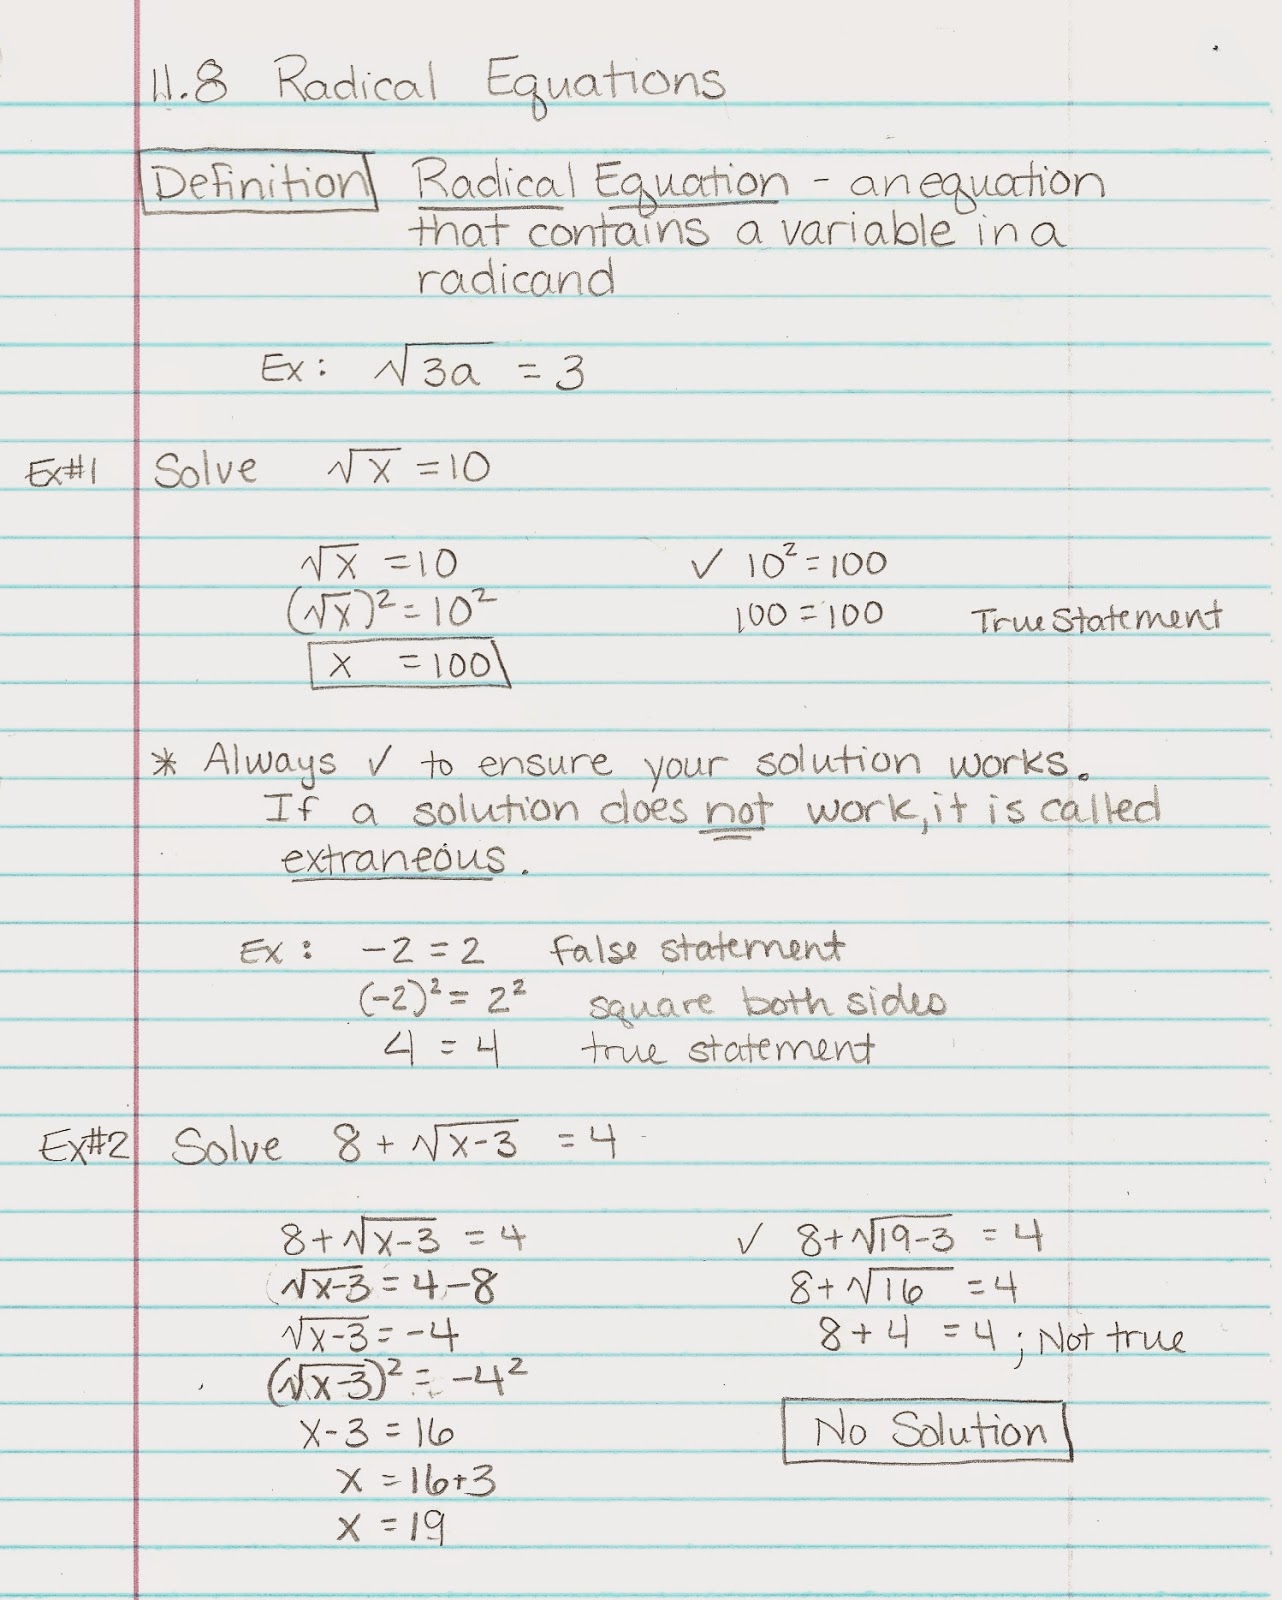 11.8 Radical Equations
Definition Radical Equation - an equation
that contains a variable in a
radicand
Ex: √3a = 3
Ex#1 Solve √x = 10
√x = 10 ✓ 10² = 100
(√x)² = 10² 100 = 100 True Statement
x = 100
* Always ✓ to ensure your solution works.
If a solution does not work, it is called
extraneous.
Ex: -2 = 2 false statement
(-2)² = 2² square both sides
4 = 4 true statement
Ex#2 Solve 8 + √x-3 = 4
8 + √x-3 = 4 ✓ 8 + √19-3 = 4
√x-3 = 4-8 8 + √16 = 4
√x-3 = -4 8 + 4 = 4 ; Not true
(√x-3)² = -4²
x-3 = 16 No Solution
x = 16+3
x = 19